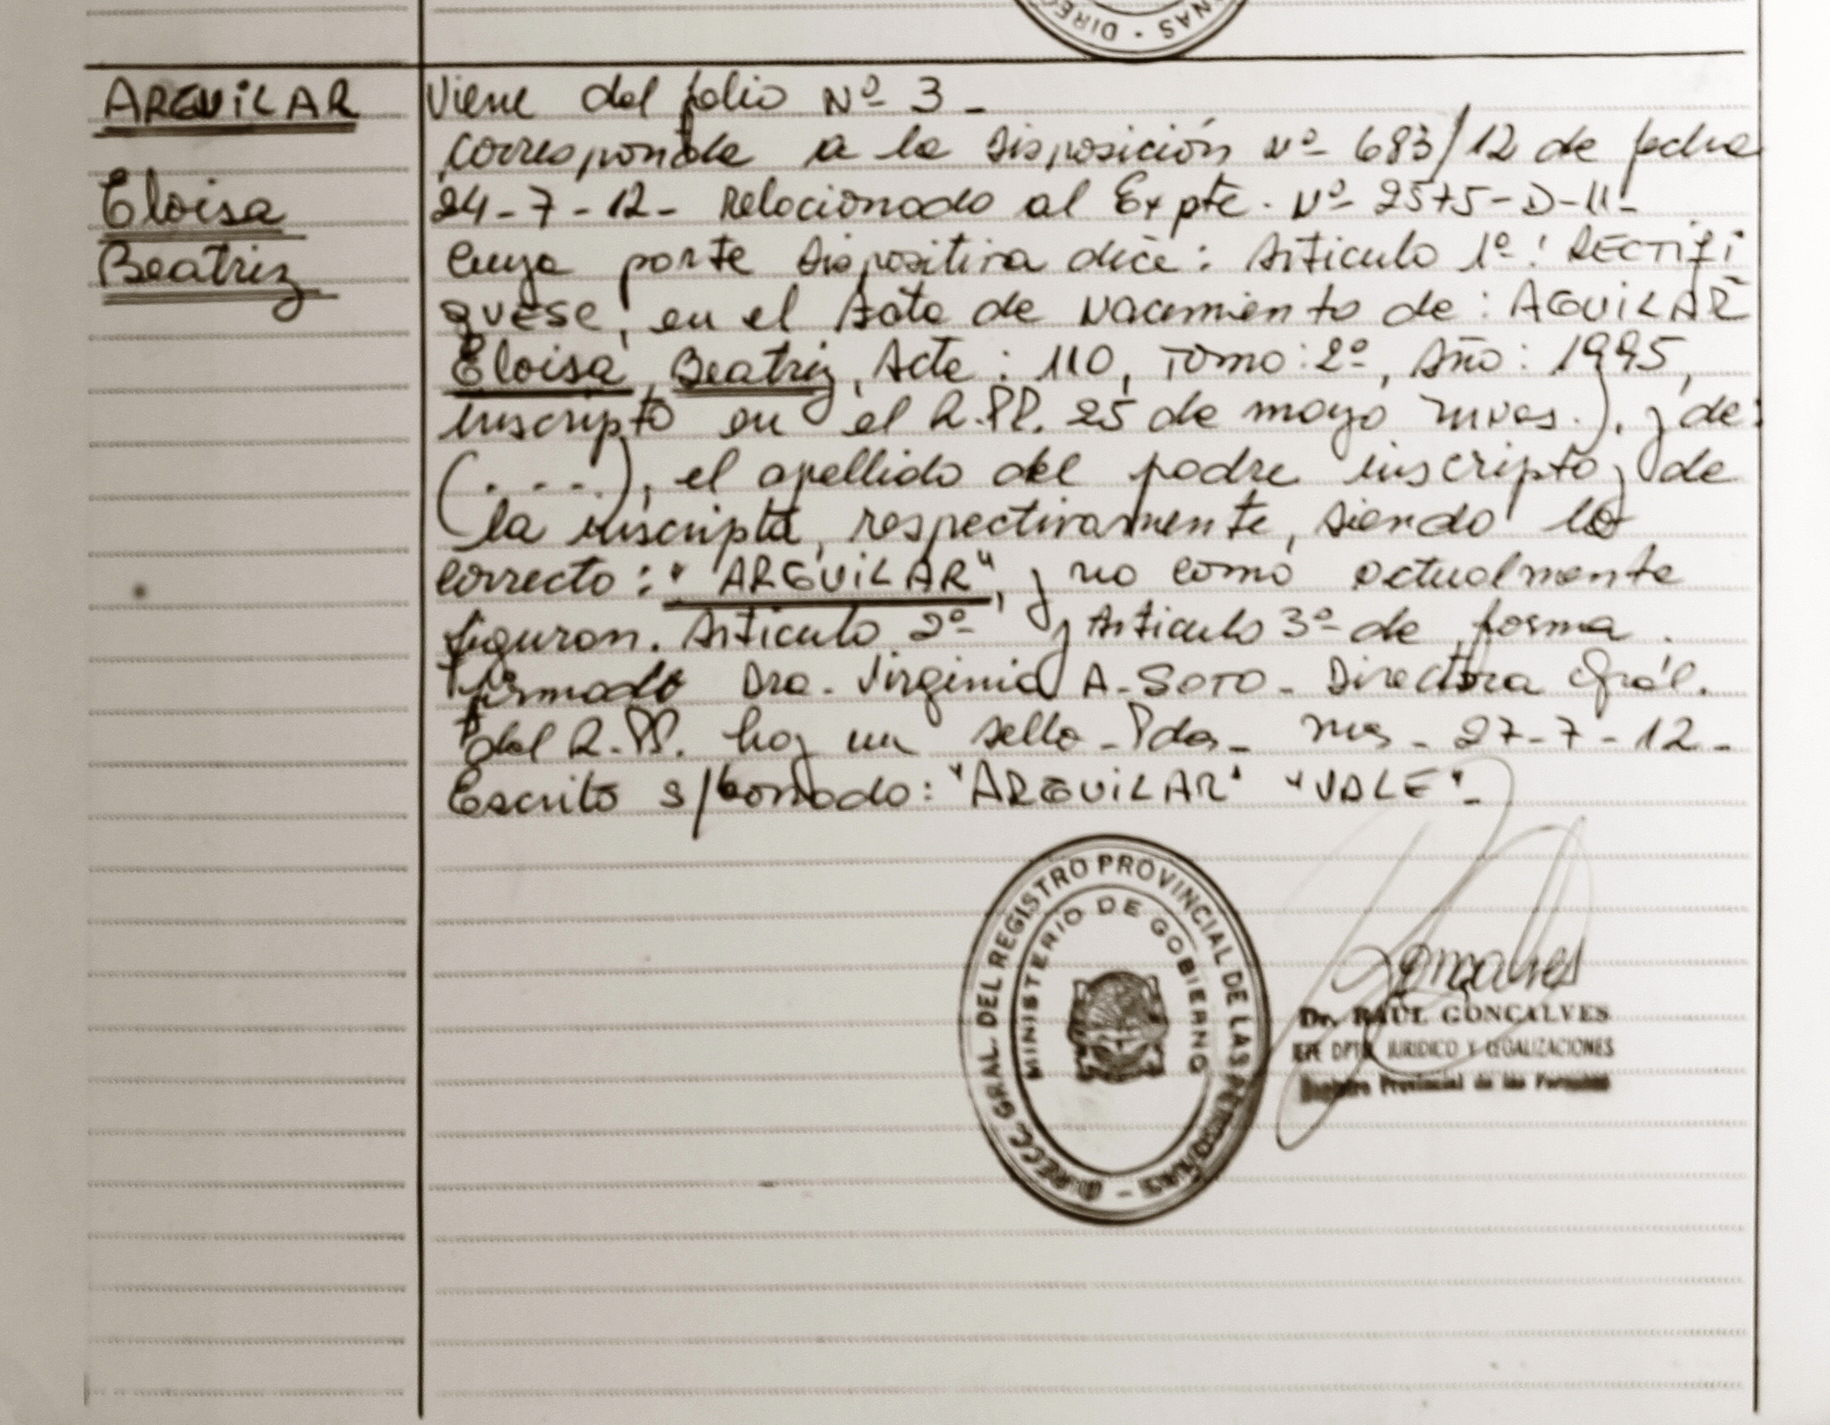 NAS - DIREC
ARGUILAR
Eloisa
Beatriz
Viene del folio Nº 3 -
Corresponde a la disposición Nº 683/12 de fecha
24-7-12- relacionado al Expte. Nº 2575-D-11-
Cuya parte dispositiva dice: Articulo 1º: RECTIFI
QUESE, en el Acta de Nacimiento de: AGUILAR
Eloisa Beatriz, Acta: 110, Tomo: 2º, Año: 1995,
inscripto en el R.PP. 25 de mayo Mnes.), y de:
(....), el apellido del padre inscripto y de
la inscripta, respectivamente, siendo lo
correcto: "ARGUILAR", y no como actualmente
figuran. Articulo 2º y Articulo 3º de forma.
firmado Dra. Virginia A. SOTO - Directora Gral.
del R.PP. hay un sello - Pdas - Mes - 27-7-12-
Escrito s/borrado: "ARGUILAR" "VALE"-
DIRECC. GRAL. DEL REGISTRO PROVINCIAL DE LAS PERSONAS -
MINISTERIO DE GOBIERNO
Goncalves
Dr. RAUL GONCALVES
JEFE DPTO. JURIDICO Y LEGALIZACIONES
Registro Provincial de las Personas